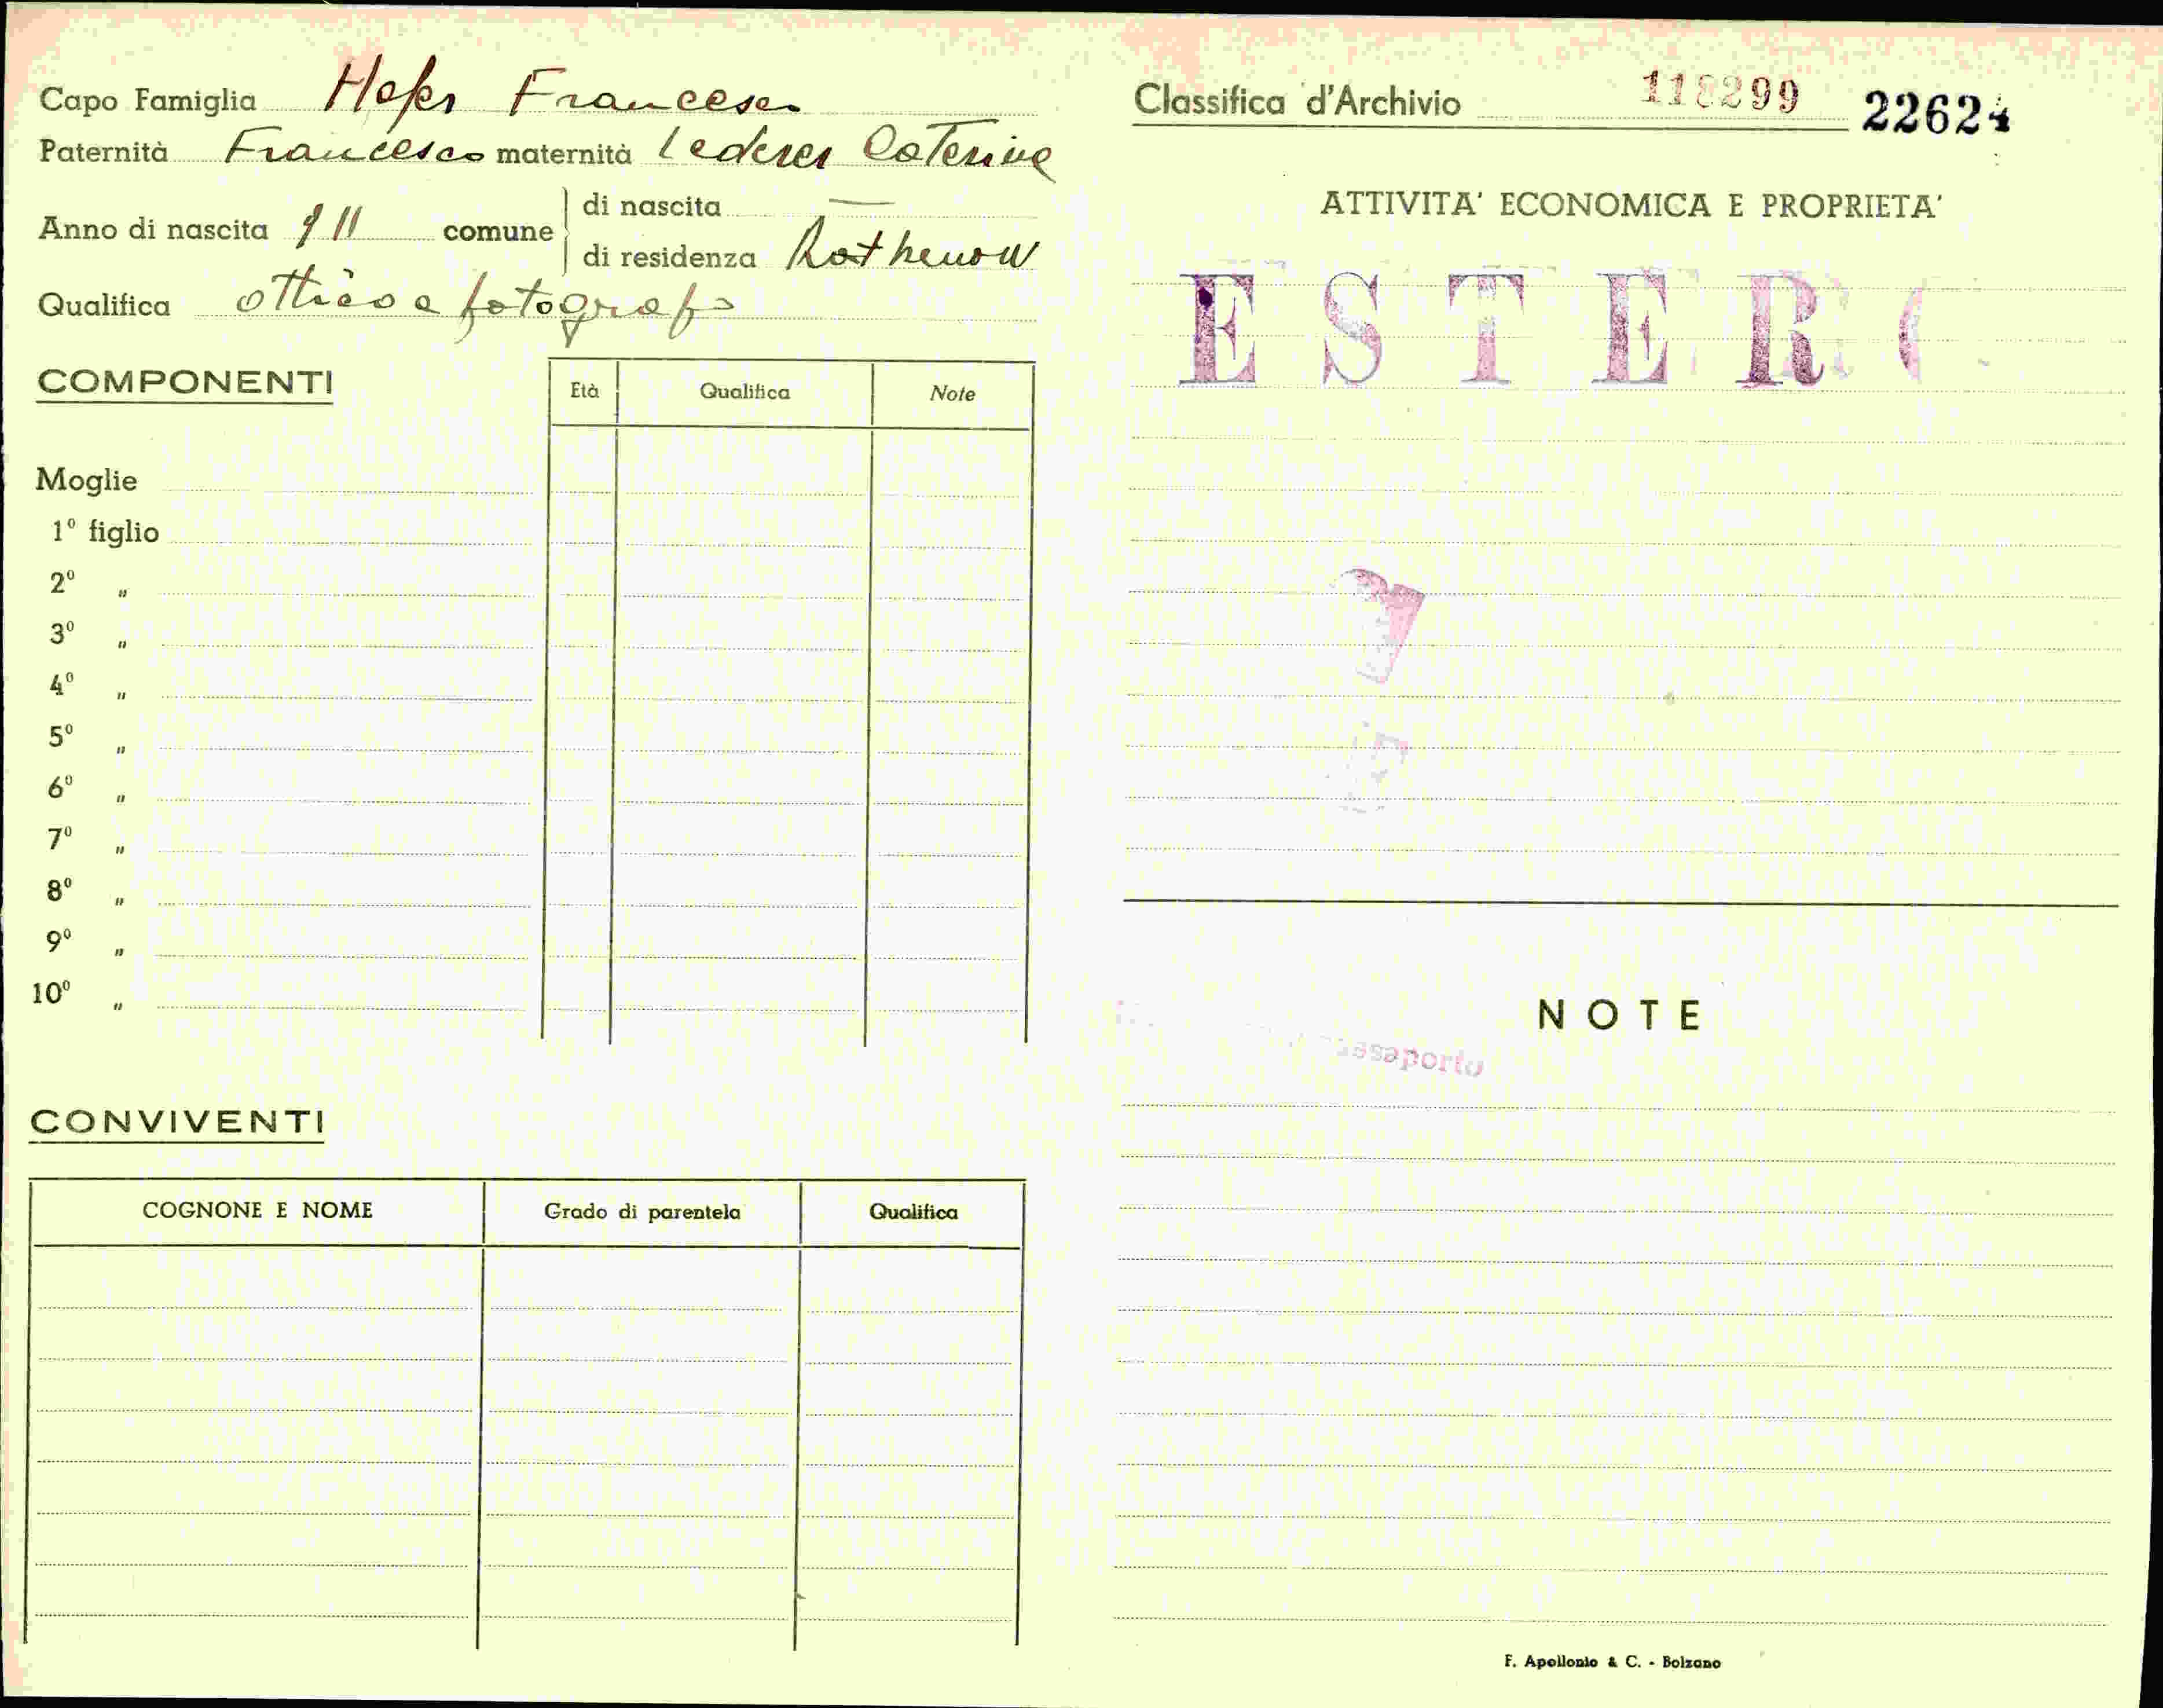 Capo Famiglia Hofer Francesco
Paternità Francesco maternità Lederer Caterina
Anno di nascita 911 comune di nascita —
di residenza Rathenow
Qualifica ottico e fotografo
COMPONENTI
Età Qualifica Note
Moglie
1º figlio
2º "
3º "
4º "
5º "
6º "
7º "
8º "
9º "
10º "
CONVIVENTI
COGNONE E NOME Grado di parentela Qualifica
Classifica d'Archivio 118299 22624
ATTIVITA' ECONOMICA E PROPRIETA'
ESTERO
NOTE
F. Apollonio & C. - Bolzano